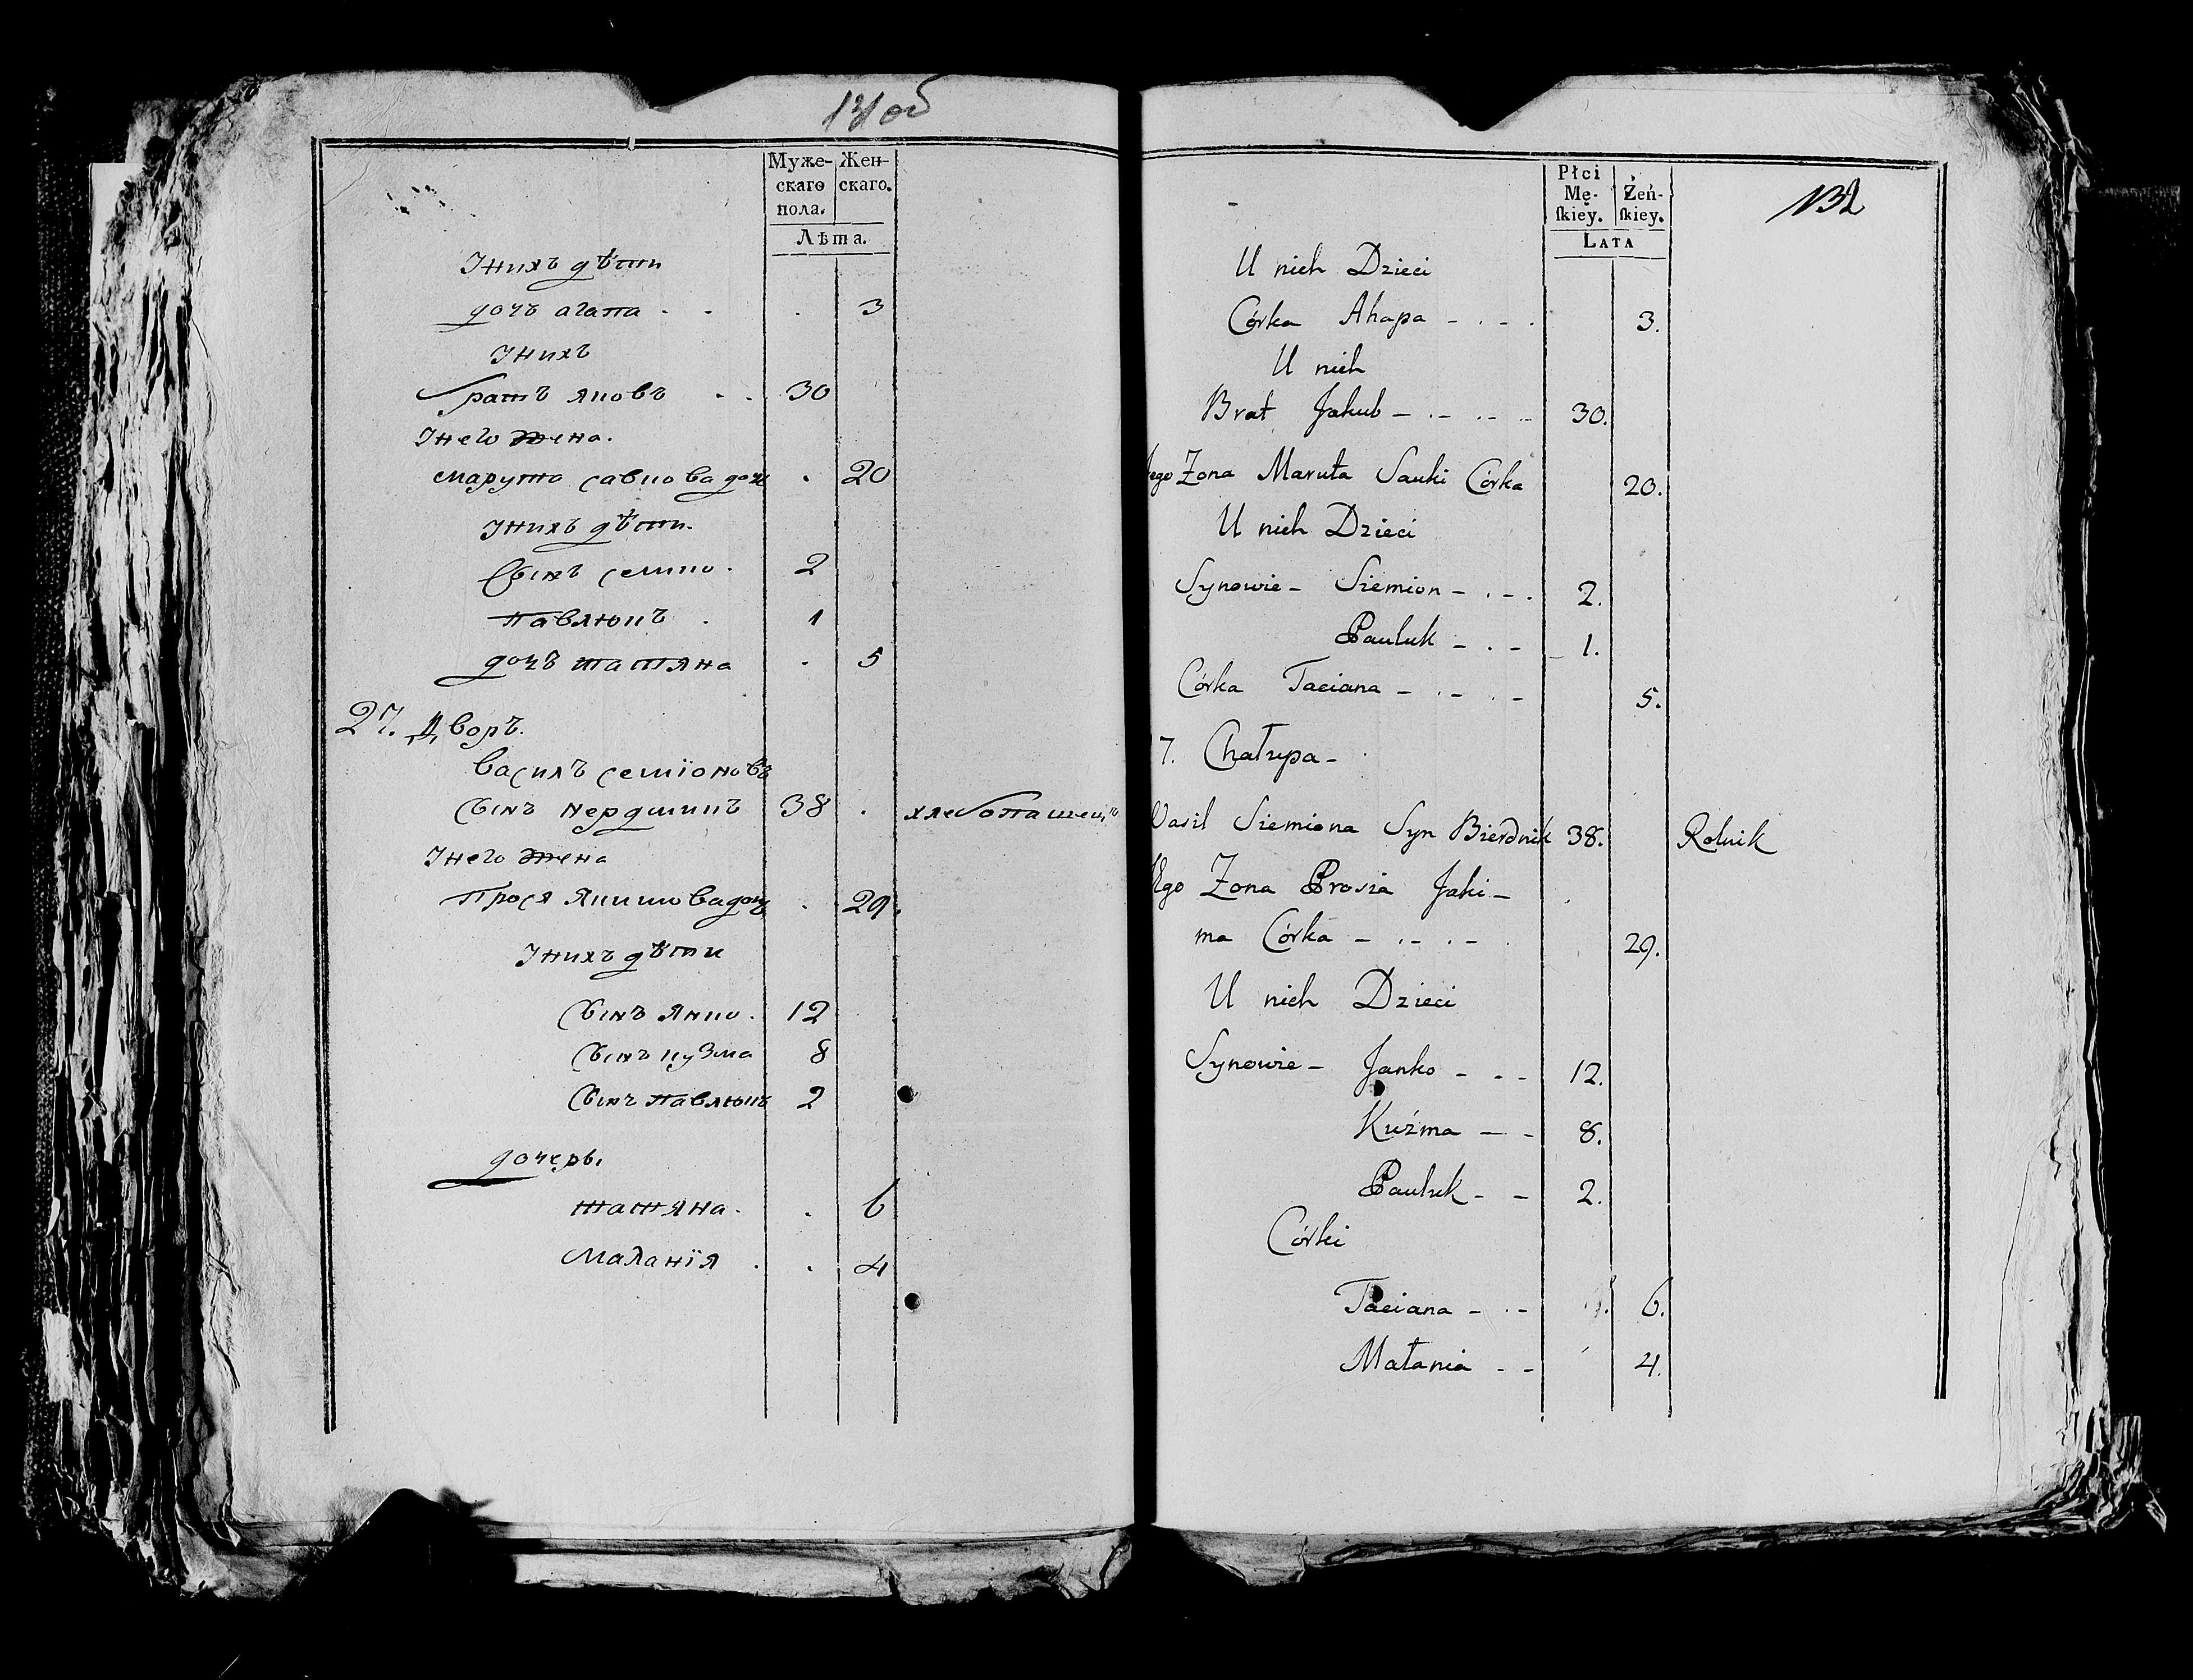 131 об
Муже- Жен-
скаго скаго.
пола.
Лѣта.
Уних дѣти
дочъ агапа . . . 3
Уних
братъ яковъ . . 30
Унего жена.
марута савкова дочъ . 20
Уних дѣти.
Сынъ семко . 2
павлюкъ . 1
дочъ татяна . 5
27. Дворъ.
василъ семїоновъ
Сынъ 38 . хлебопашецъ
Унего жена
прося якимова дочъ . 29.
Уних дѣти
Сынъ янко . 12
Сынъ кузма 8
Сынъ павлюкъ 2
дочеры
татяна . . 6
маланїя . . 4
132
Płci
Mę- Żeń-
ſkiey. ſkiey.
LATA
U nich Dzieci
Córka Ahapa - . - . 3.
U nich
Brat Jakub - . - . . - 30.
Jego Zona Maruta Sauki Córka 20.
U nich Dzieci
Synowie - Siemion - . - . 2.
Pauluk - . - 1.
Córka Taciana - . - . - 5.
7. Chałupa -
Wasil Siemiona Syn Bierdnik 38. Rolnik
Ego Zona Prosia Jaki -
ma Córka - . - . - . 29.
U nich Dzieci
Synowie - Janko - - - 12.
Kuźma - - 8.
Pauluk - - 2.
Córki
Taciana - . - 6.
Małania - - 4.